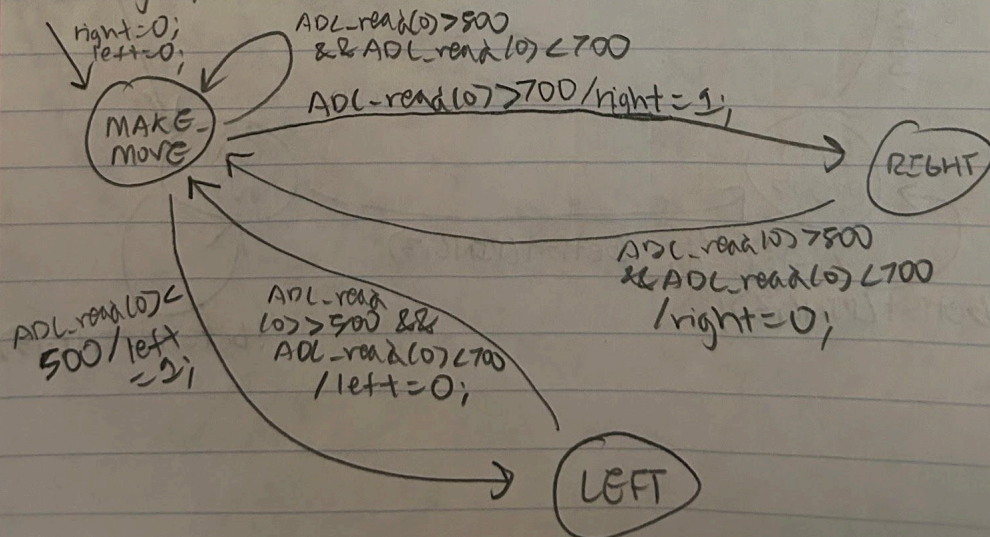 right=0;
left=0;
ADC_read(0)>500
&& ADC_read(0)<700
MAKE_
MOVE
ADC_read(0)>700/right=1;
RIGHT
ADC_read(0)>500
&& ADC_read(0)<700
/right=0;
ADC_read(0)<
500/left
=1;
ADC_read
(0)>500 &&
ADC_read(0)<700
/left=0;
LEFT